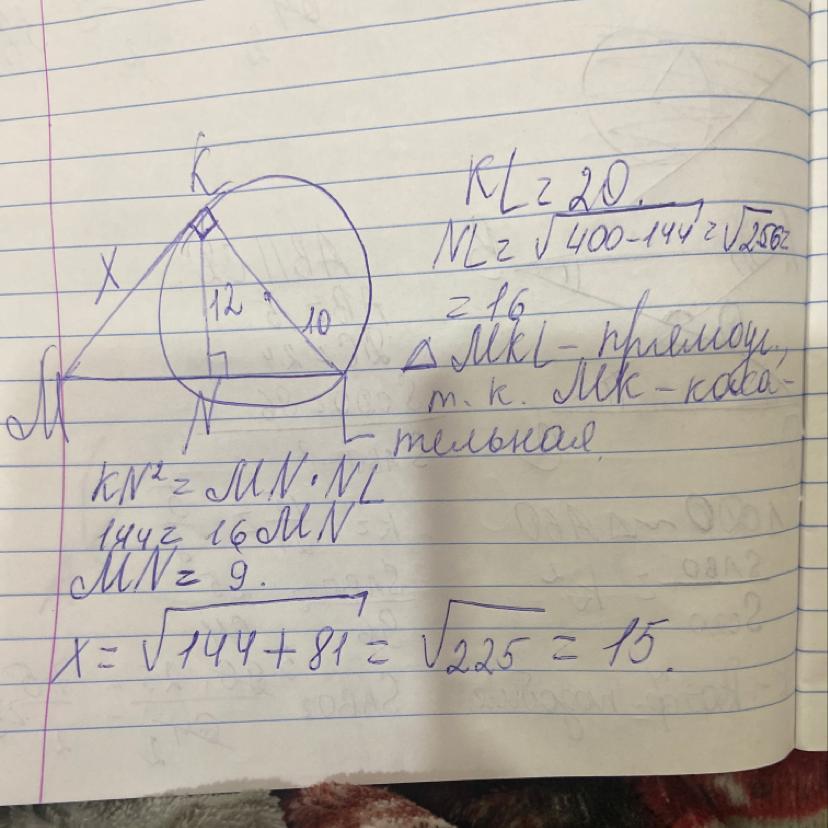 K
X
12
10
M
N
L
KL = 20.
NL = √400-144 = √256 =
= 16
△ MKL - прямоуг.,
т. к. MK - каса-
тельная.
KN² = MN · NL
144 = 16MN
MN = 9.
X = √144+81 = √225 = 15.